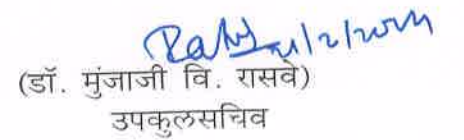 21/2/2024
(डॉ. मुंजाजी वि. रासवे)
उपकुलसचिव